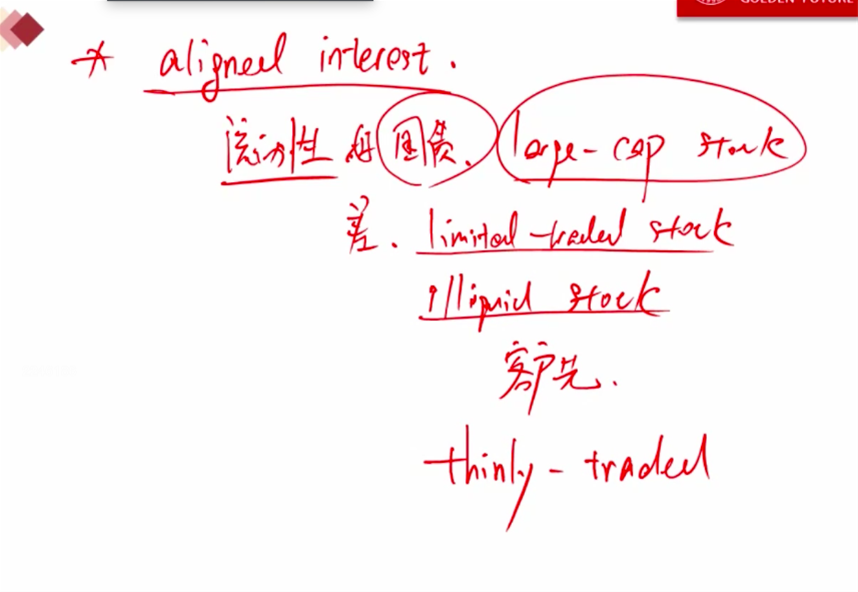 GOLDEN FUTURE
* aligned interest.
流动性 好 国债. large-cap stock
差. limited-traded stock
illiquid stock
客户先.
thinly-traded